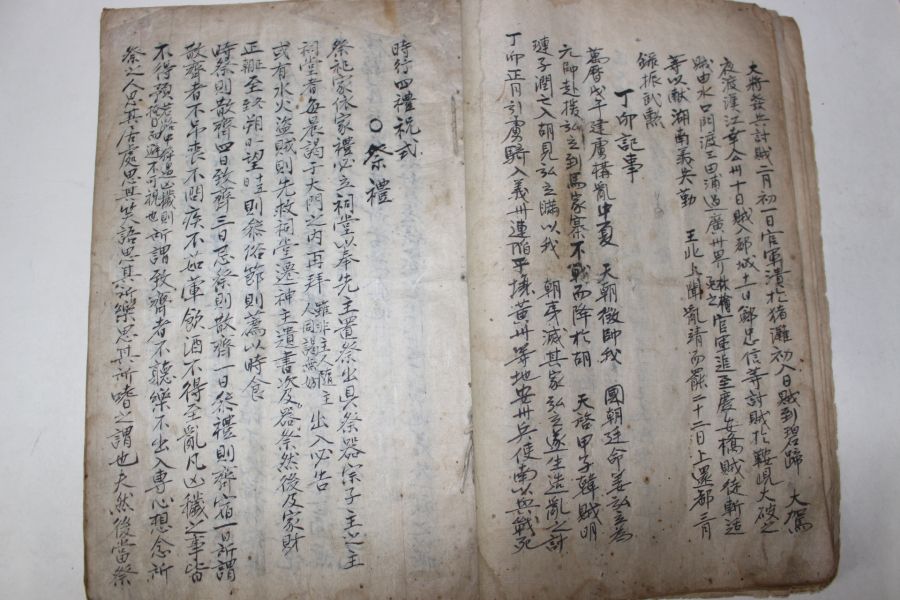 大將發兵討賊二月初一日官軍潰於猪灘初八日賊到碧蹄 大駕
夜渡漢江幸公州十日賊入都城十一日鄭忠信等討賊於鞍峴大破之
賊由水口門渡三田浦過廣州界 官軍追至慶安橋賊徒斬适
等以献湖南義兵勤 王北上聞亂靖而罷二十二日上還都三月
錄振武勳
丁卯記事
萬曆戊午建虜搆亂中夏 天朝徵師我 國朝廷命姜弘立爲
元帥赴援弘立到馬家寨不戰而降於胡 天啓甲子韓賊明
璉子潤亡入胡見弘立瞞以我 朝廷滅其家弘立遂生造亂之計
丁卯正月引虜騎入義州連陷平壤黃州等地安州兵使南以興戰死
時行四禮祝式
○祭禮
祭祀家依家禮必立祠堂以奉先主置祭田具祭器宗子主之主
祠堂者每晨謁于大門之內再拜 雖非主人隨主人同謁無妨 出入必告
或有水火盜賊則先救祠堂遷神主遺書次及祭器然後及家財
正朝至終朔望則參俗節則薦以時食
時祭則散齊四日致齊三日忌祭則散齊一日參禮則齊宿一日所謂
散齊者不弔喪不問疾不茹葷飲酒不得至亂凡凶穢之事皆
不得預 若路中猝遇凶穢則掩目而避不可視也 所謂致齊者不聽樂不出入專心想念所
祭之人思其居處思其笑語思其所樂思其所嗜之謂也夫然後當祭